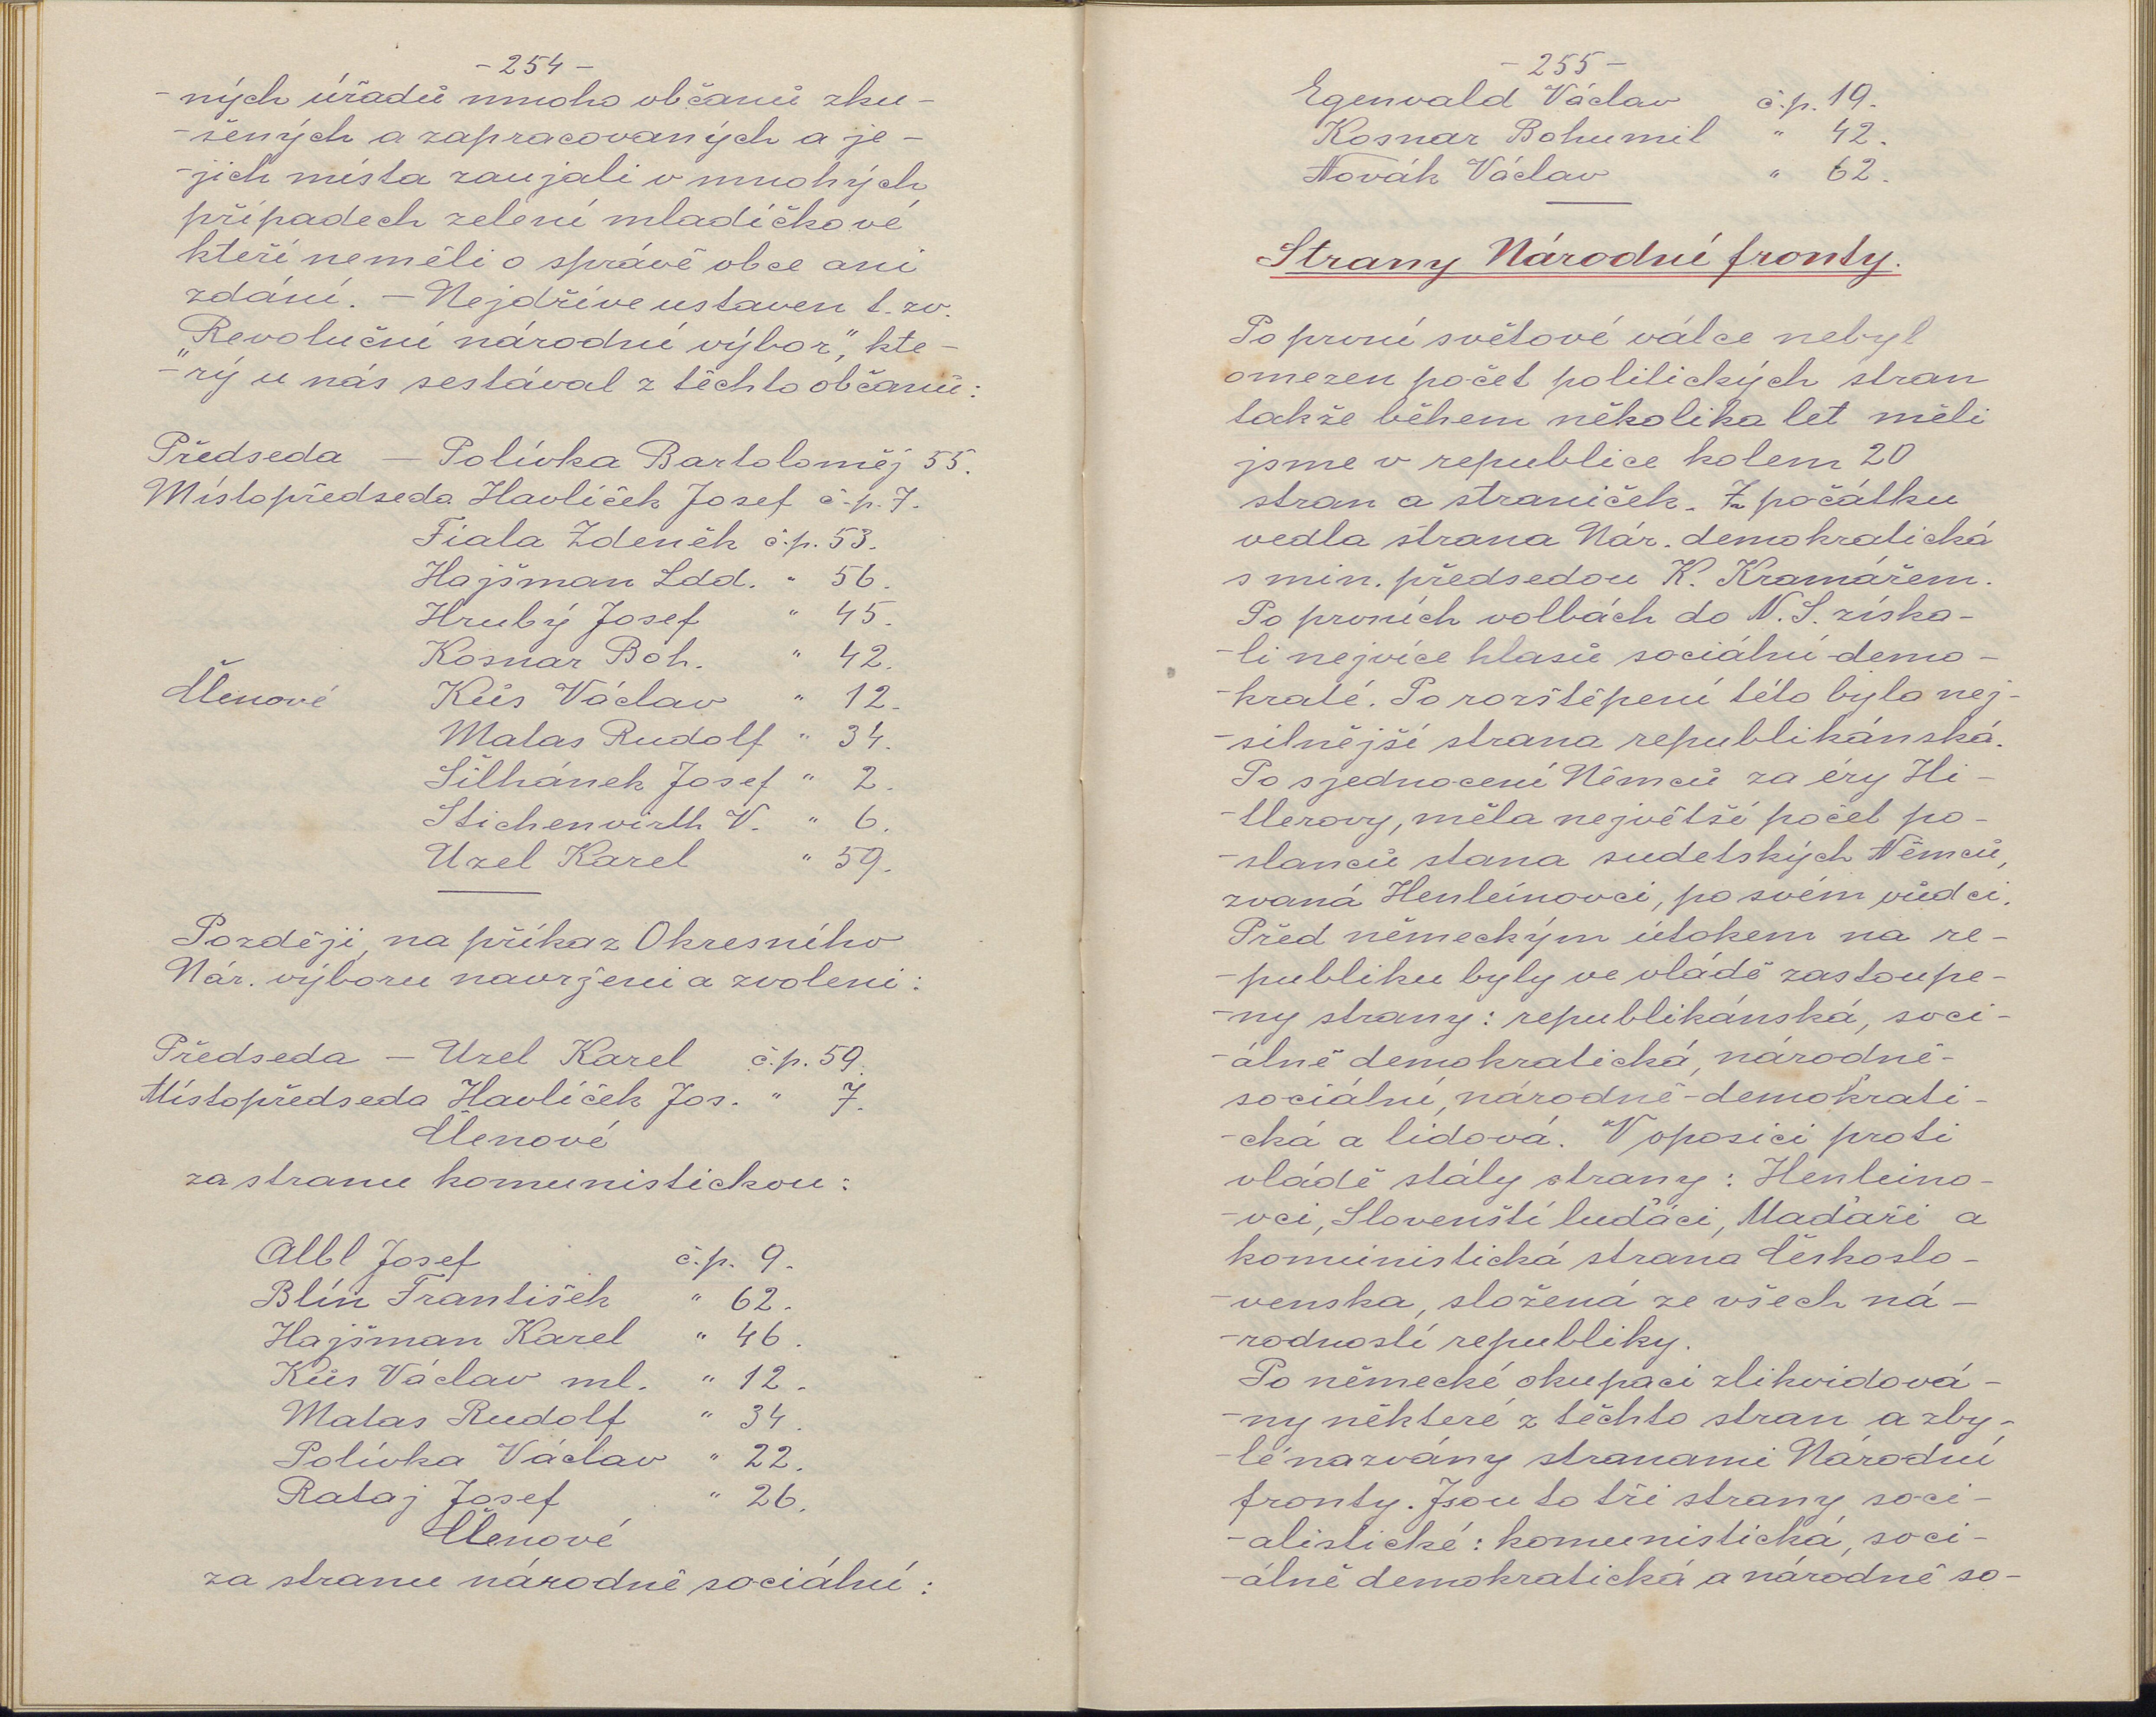 - 254 -
-ných úřadů mnoho občanů zku-
-šených a zapracovaných a je-
-jich místa zaujali v mnohých
případech zelení mladíčkové
kteří neměli o správě obce ani
zdání. - Nejdříve ustaven t. zv.
„Revoluční národní výbor", kte-
-rý u nás sestával z těchto občanů:
Předseda - Polívka Bartoloměj 55.
Místopředseda Havlíček Josef č.p. 7.
Fiala Zdeněk č.p. 53.
Hajšman Ldd. " 56.
Hrubý Josef " 45.
Kosnar Boh. " 42.
Členové Kůs Václav " 12.
Matas Rudolf " 34.
Šilhánek Josef " 2.
Stichenwirth V. " 6.
Uzel Karel " 59.
Později, na příkaz Okresního
Nár. výboru navrženi a zvoleni:
Předseda - Uzel Karel č.p. 59.
Místopředseda Havlíček Jos. " 7.
Členové
za stranu komunistickou:
Albl Josef č.p. 9.
Blín František " 62.
Hajšman Karel " 46.
Kůs Václav ml. " 12.
Matas Rudolf " 34.
Polívka Václav " 22.
Rataj Josef " 26.
Členové
za stranu národně sociální:
- 255 -
Egenvald Václav č.p. 19.
Kosnar Bohumil " 42.
Novák Václav " 62.
Strany Národní fronty.
Po první světové válce nebyl
omezen počet politických stran
takže během několika let měli
jsme v republice kolem 20
stran a straniček. Z počátku
vedla strana Nár. demokratická
s min. předsedou K. Kramářem.
Po prvních volbách do N. S. získa-
-li nejvíce hlasů sociální demo-
-kraté. Po rozštěpení této byla nej-
-silnější strana republikánská.
Po sjednocení Němců za éry Hi-
-tlerovy, měla největší počet po-
-slanců stana sudetských Němců,
zvaná Henleinovci, po svém vůdci.
Před německým útokem na re-
-publiku byly ve vládě zastoupe-
-ny strany: republikánská, soci-
-álně demokratická, národně-
sociální, národně-demokrati-
-cká a lidová. V oposici proti
vládě stály strany: Henleino-
-vci, Slovenští luďáci, Maďaři a
komunistická strana Českoslo-
-venska, složená ze všech ná-
-rodností republiky.
Po německé okupaci zlikvidová-
-ny některé z těchto stran a zby-
-lé nazvány stranami Národní
fronty. Jsou to tři strany soci-
-alistické: komunistická, soci-
-álně demokratická a národně so-